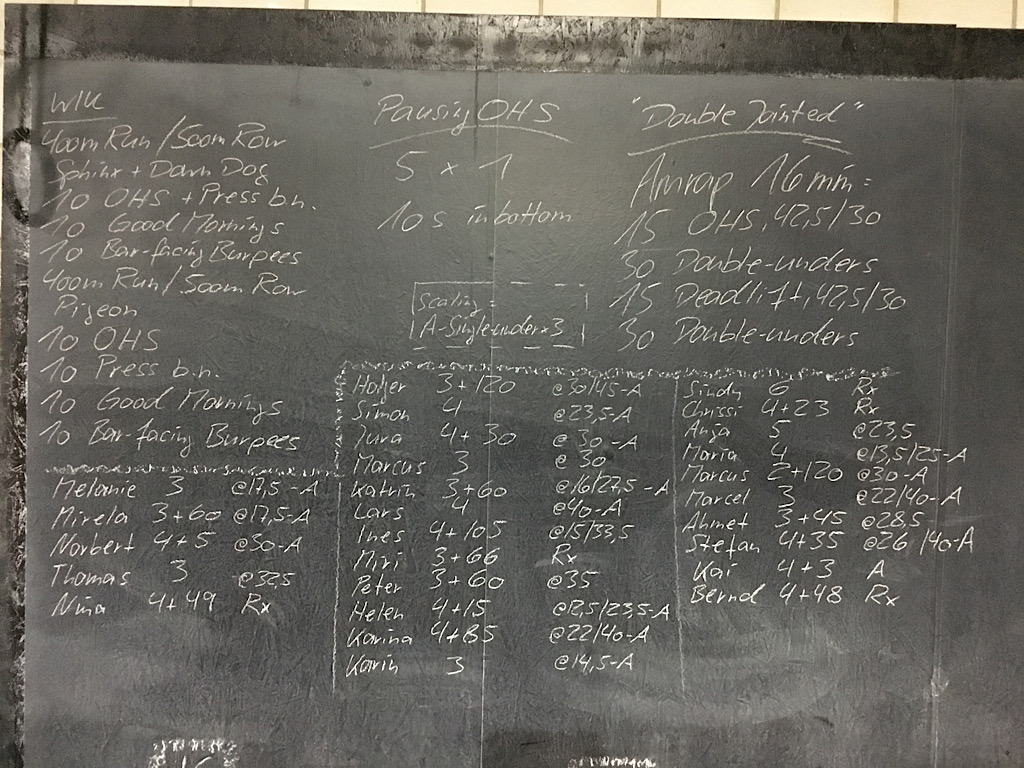 WU
400m Run/500m Row
Sphinx + Down Dog
10 OHS + Press b.n.
10 Good Mornings
10 Bar-facing Burpees
400m Run/500m Row
Pigeon
10 OHS
10 Press b.n.
10 Good Mornings
10 Bar-facing Burpees
Pausing OHS
5 x 1
10s in bottom
Scaling:
A-Single-unders x 3
"Double Jointed"
Amrap 16 min:
15 OHS, 42,5/30
30 Double-unders
15 Deadlift, 42,5/30
30 Double-unders
Melanie 3 @17,5-A
Mirela 3+60 @17,5-A
Norbert 4+5 @30-A
Thomas 3 @32,5
Nina 4+49 Rx
Holger 3+120 @30/45-A
Simon 4 @23,5-A
Jura 4+30 @30-A
Marcus 3 @30
Katrin 3+60 @16/27,5-A
Lars 4 @40-A
Ines 4+105 @15/33,5
Miri 3+66 Rx
Peter 3+60 @35
Helen 4+15 @12,5/23,5-A
Karina 4+85 @22/40-A
Karin 3 @14,5-A
Sindy 6 Rx
Chrissi 4+23 Rx
Anja 5 @23,5
Maria 4 @13,5/25-A
Marcus 2+120 @30-A
Marcel 3 @22/40-A
Ahmet 3+45 @28,5
Stefan 4+35 @26/40-A
Kai 4+3 A
Bernd 4+48 Rx